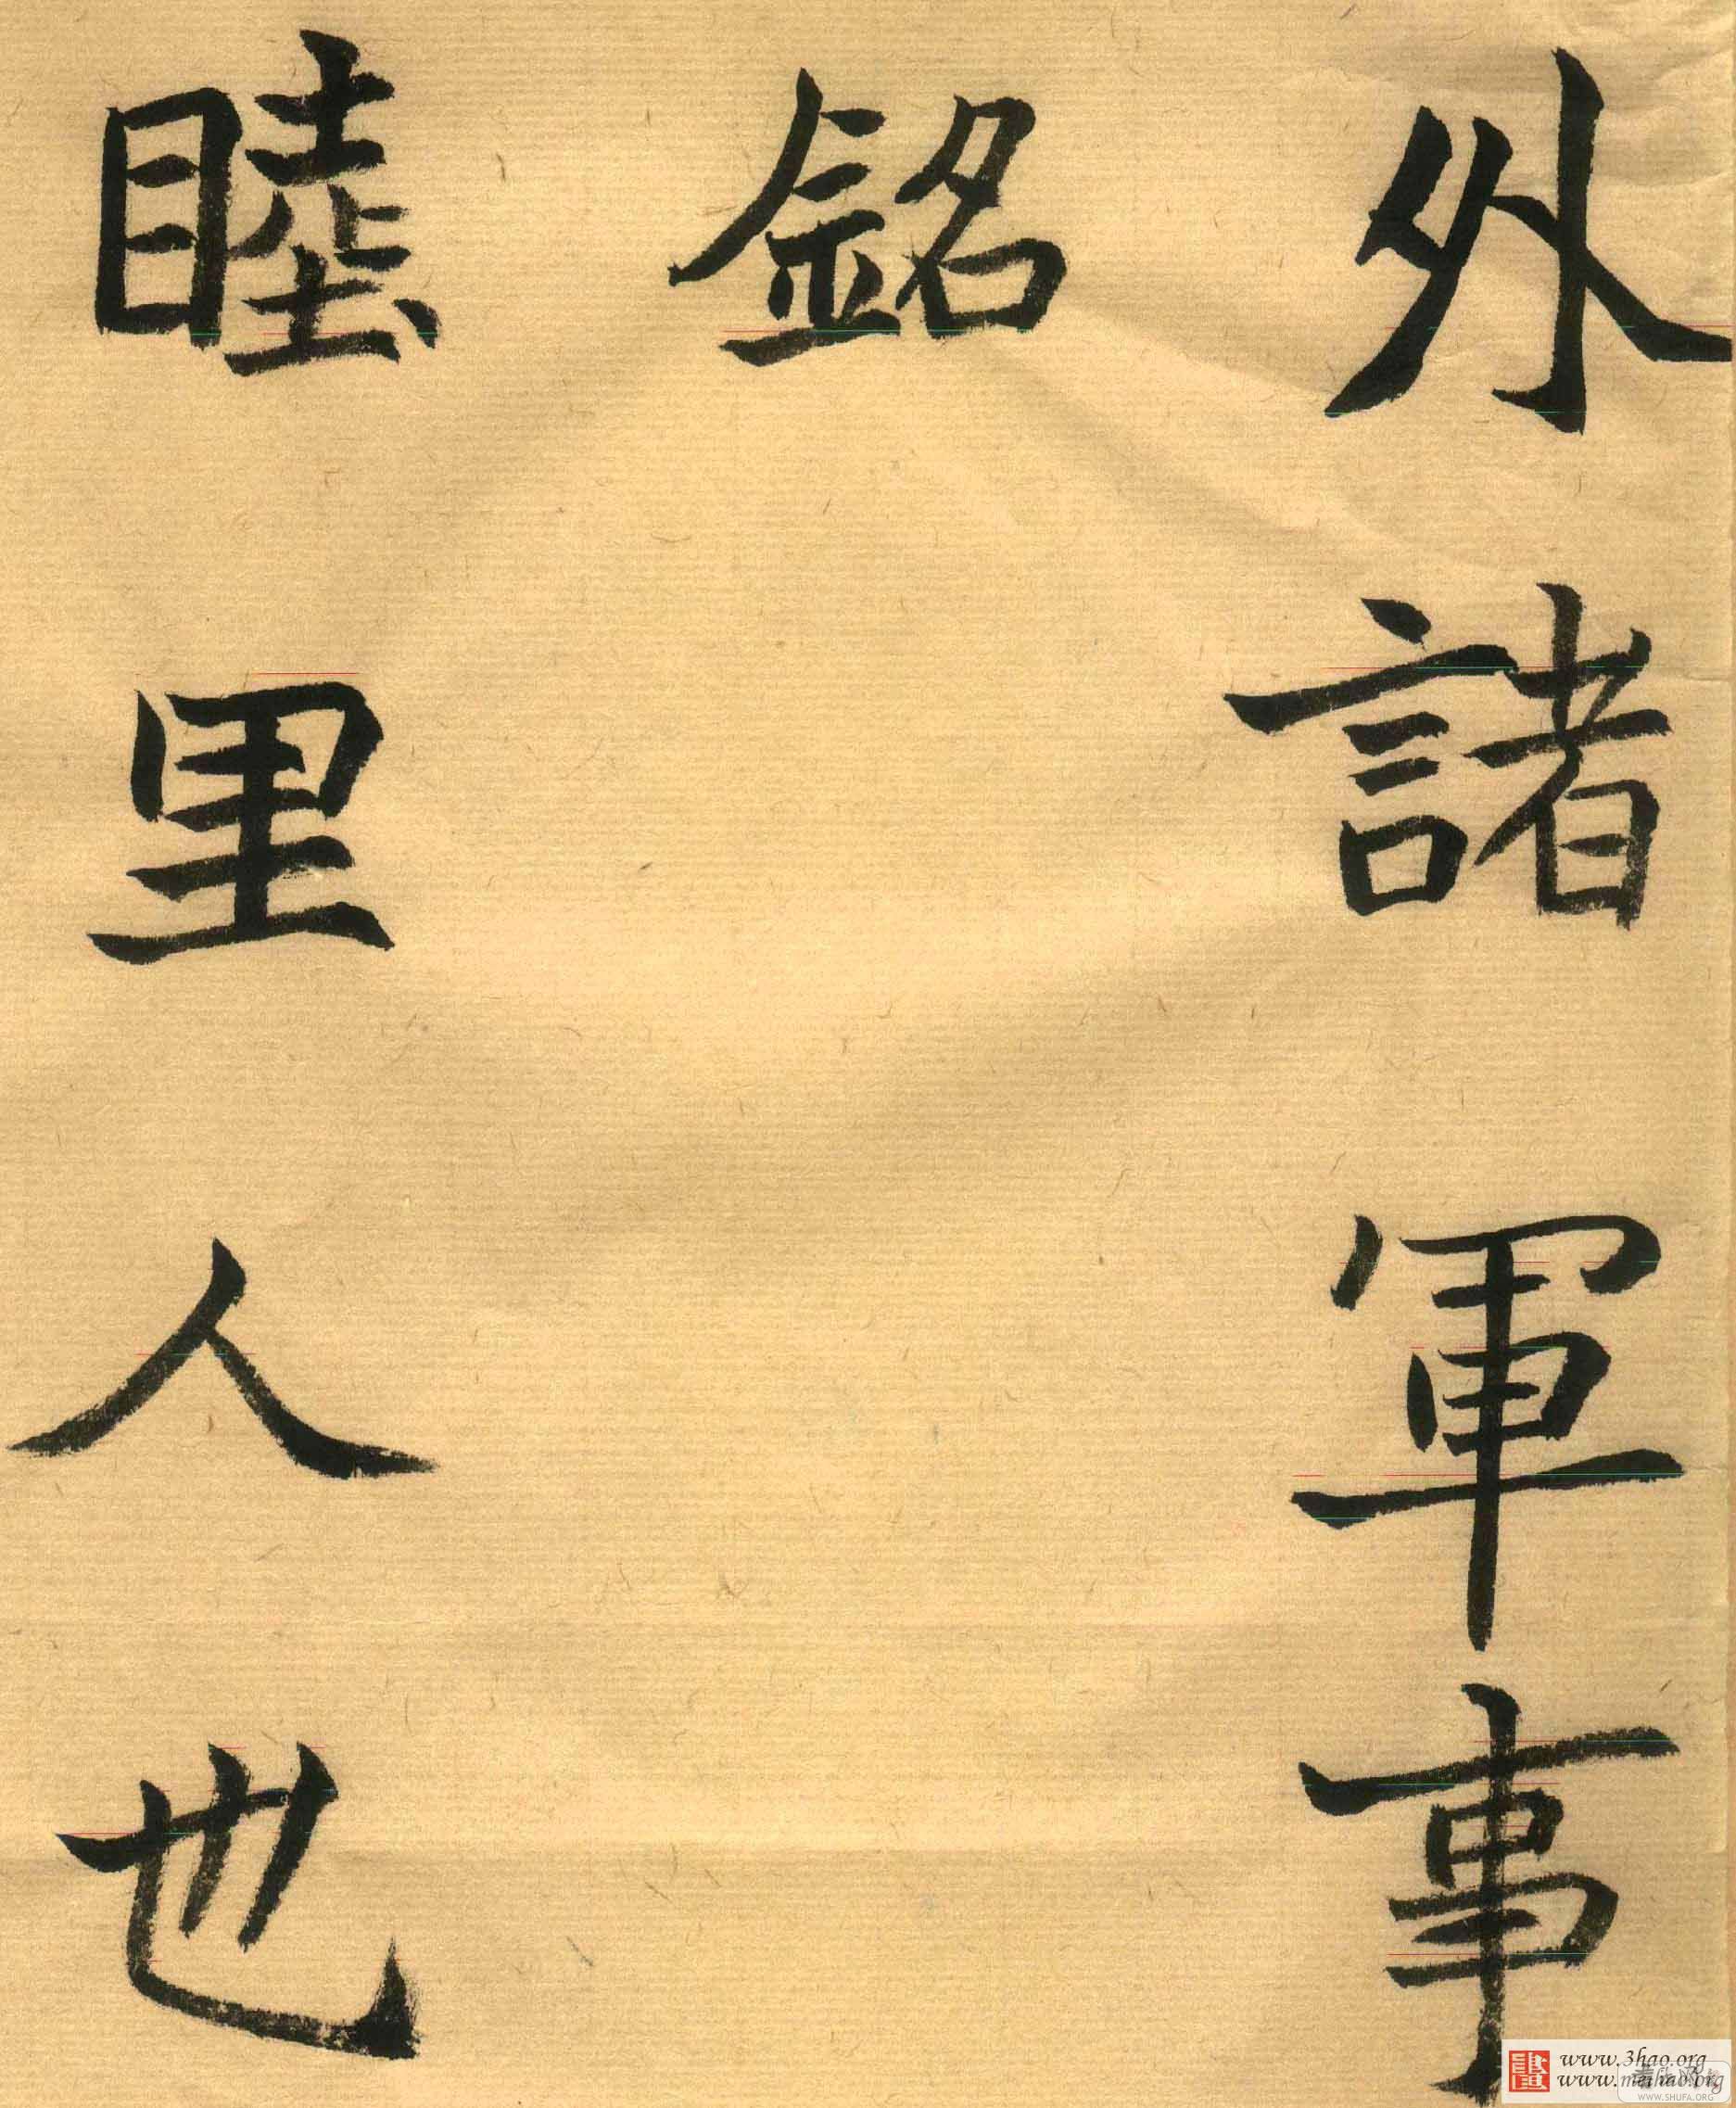 外諸軍事
銘
睦里人也
www.3hao.org
www.meihao.org
WWW.SHUFA.ORG